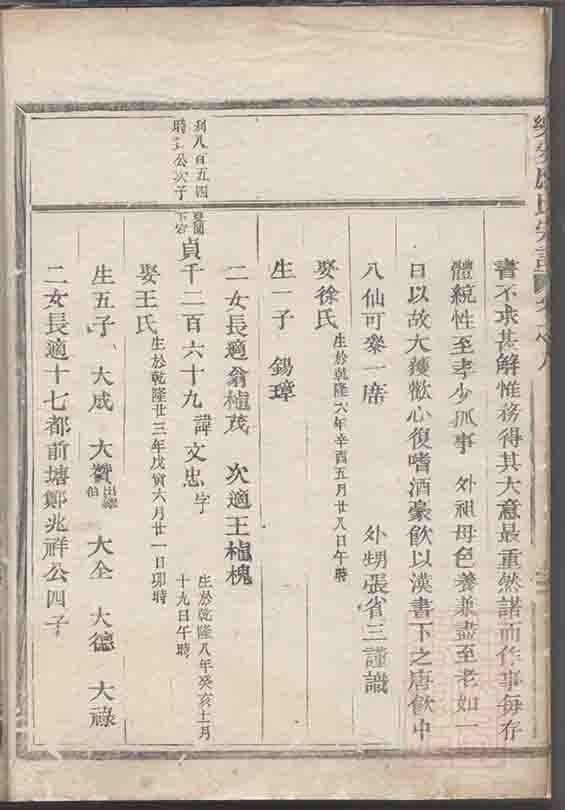 書不求甚解惟務得其大意最重然諾而作事每存
體統性至孝少孤事 外祖母色養兼盡至老如一
日以故大獲歡心復嗜酒豪飲以漢書下之唐飲中
八仙可參一席 外甥張省三謹識
娶徐氏 生於乾隆六年辛酉五月廿八日午時
生一子 錫璋
二女長適翁櫨茂 次適王櫨槐
利八百五四
時 公次子
貞千二百六十九 諱文忠 字 生於乾隆八年癸亥十一月
十九日午時
娶王氏 生於乾隆廿三年戊寅六月廿一日卯時
生五子 大成 大贊 出繼伯 大全 大德 大祿
二女長適十七都前塘鄭兆祥公四子